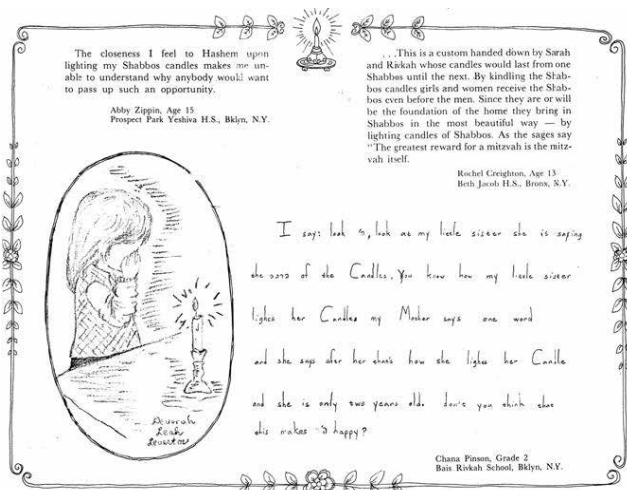 The closeness I feel to Hashem upon
lighting my Shabbos candles makes me un-
able to understand why anybody would want
to pass up such an opportunity.
Abby Zippin, Age 15
Prospect Park Yeshiva H.S., Bklyn, N.Y.
. . .This is a custom handed down by Sarah
and Rivkah whose candles would last from one
Shabbos until the next. By kindling the Shab-
bos candles girls and women receive the Shab-
bos even before the men. Since they are or will
be the foundation of the home they bring in
Shabbos in the most beautiful way — by
lighting candles of Shabbos. As the sages say
"The greatest reward for a mitzvah is the mitz-
vah itself.
Rochel Creighton, Age 13
Beth Jacob H.S., Bronx, N.Y.
I say: look , look at my little sister she is saying
the ברכה of the Candles. You know how my little sister
lights her Candles my Mother says one word
and she says after her that's how she lights her Candle
and she is only two years old. don't you think that
this makes happy?
Chana Pinson, Grade 2
Bais Rivkah School, Bklyn, N.Y.
Devorah
Leah